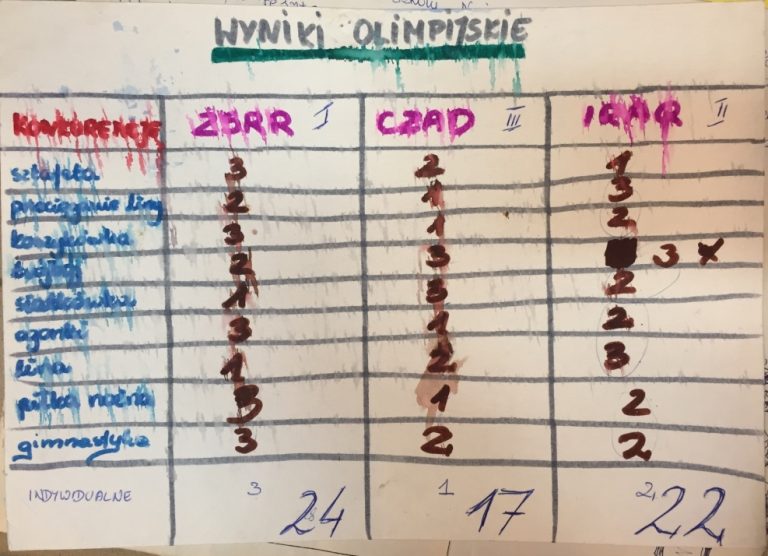 WYNIKI OLIMPIJSKIE
KONKURENCJE ZBRR I CZAD III IRAQ II
sztafeta 3 2 1
przeciąganie liny 2 1 3
koszykówka 3 1 2
2 3 3 x
siatkówka 1 3 2
ogonki 3 1 2
1 2 3
piłka nożna 3 1 2
gimnastyka 3 2 2
INDYWIDUALNE 3 24 1 17 2 22